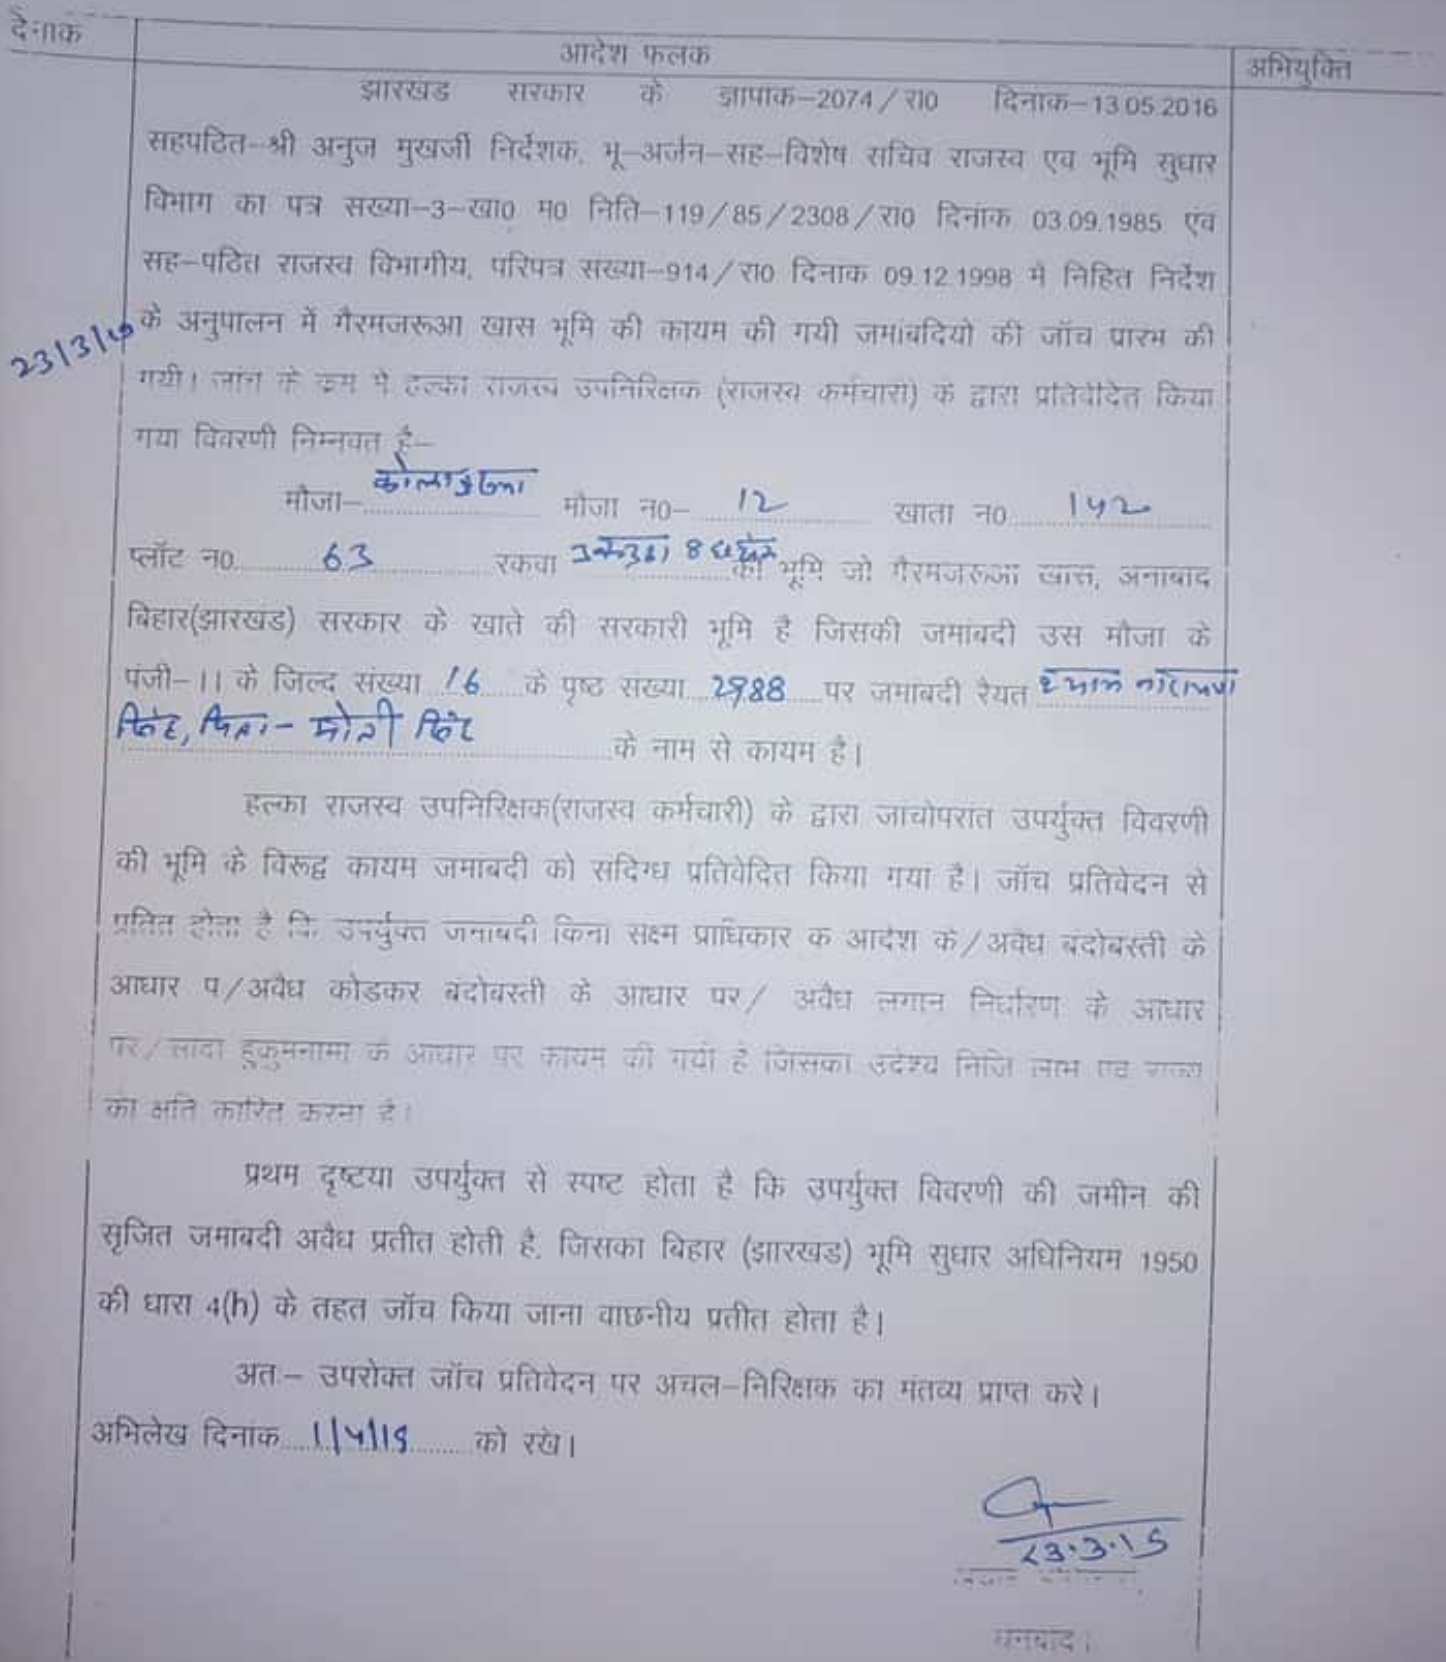 देनाक
आदेश फलक
अभियुक्ति
झारखंड सरकार के ज्ञापांक-2074/रा0 दिनाक-13.05.2016
सहपठित-श्री अनुज मुखर्जी निर्देशक, भू-अर्जन-सह-विशेष सचिव राजस्व एव भूमि सुधार
विभाग का पत्र सख्या-3-खा0 म0 निति-119/85/2308/रा0 दिनांक 03.09.1985 एंव
सह-पठित राजस्व विभागीय, परिपत्र सख्या-914/रा0 दिनाक 09.12.1998 मे निहित निर्देश
के अनुपालन में गैरमजरूआ खास भूमि की कायम की गयी जमांबदियो की जॉच प्रारभ की
23/3/
गयी। जांच के क्रम मे हल्का राजस्व उपनिरिक्षक (राजस्व कर्मचारी) के द्वारा प्रतिवेदित किया
गया विवरणी निम्नवत है-
मौजा- मौजा न0- 12 खाता न0 142
प्लॉट न0. 63 रकवा की भूमि जो गैरमजरूआ खास, अनाबाद
बिहार(झारखंड) सरकार के खाते की सरकारी भूमि है जिसकी जमांबदी उस मौजा के
पंजी-11 के जिल्द संख्या 16 के पृष्ट संख्या 2988 पर जमांबदी रैयत नारायण
पिता- मोती के नाम से कायम है।
हल्का राजस्व उपनिरिक्षक(राजस्व कर्मचारी) के द्वारा जाचोपरांत उपर्युक्त विवरणी
की भूमि के विरूद्व कायम जमाबदी को संदिग्ध प्रतिवेदित किया गया है। जॉच प्रतिवेदन से
प्रतित होता है कि उपर्युक्त जमाबदी बिना सक्ष्म प्राधिकार क आदेश के/अवैध बंदोबस्ती के
आधार प/अवैध कोडकर बंदोवस्ती के आधार पर/ अवैध लगान निर्धारण के आधार
पर/सादा हुकुमनामा के आधार पर कायम की गयी है जिसका उदेश्य निजि लाभ एव राज्य
को क्षति कारित करना है।
प्रथम दृष्टया उपर्युक्त से स्पष्ट होता है कि उपर्युक्त विवरणी की जमीन की
सृजित जमांबदी अवैध प्रतीत होती है, जिसका बिहार (झारखड) भूमि सुधार अधिनियम 1950
की धारा 4(h) के तहत जॉच किया जाना वाछनीय प्रतीत होता है।
अतः- उपरोक्त जॉच प्रतिवेदन पर अचल-निरिक्षक का मंतव्य प्राप्त करे।
अभिलेख दिनांक 1/4/15 को रखे।
23.3.15
धनबाद।